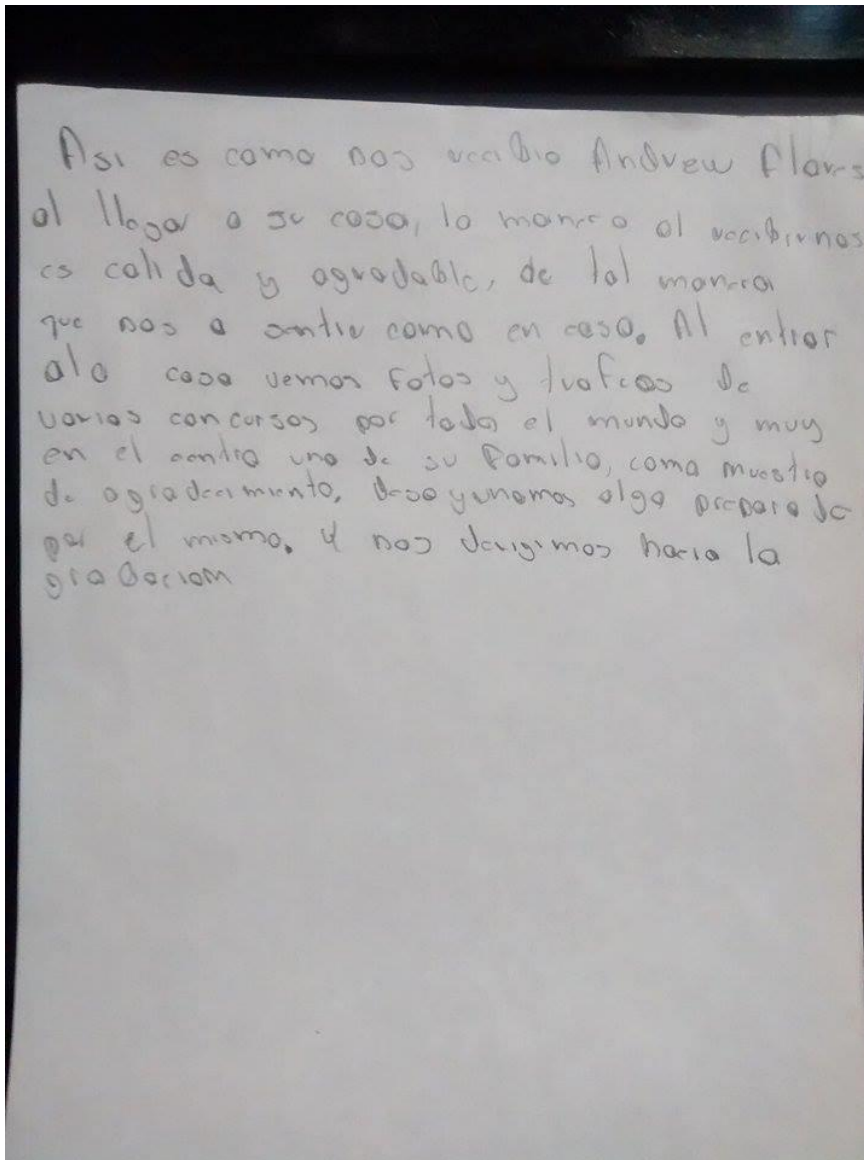 Asi es como nos recibio Andrew Flores
al llegar a su casa, la manera al recibirnos
es calida y agradable, de tal manera
que nos a sentir como en casa. Al entrar
ala casa vemos fotos y trofeos de
varios concursos por todo el mundo y muy
en el centro una de su familia, como muestra
de agradecimiento, desayunamos algo preparado
por el mismo. Y nos dirigimos hacia la
grabacion